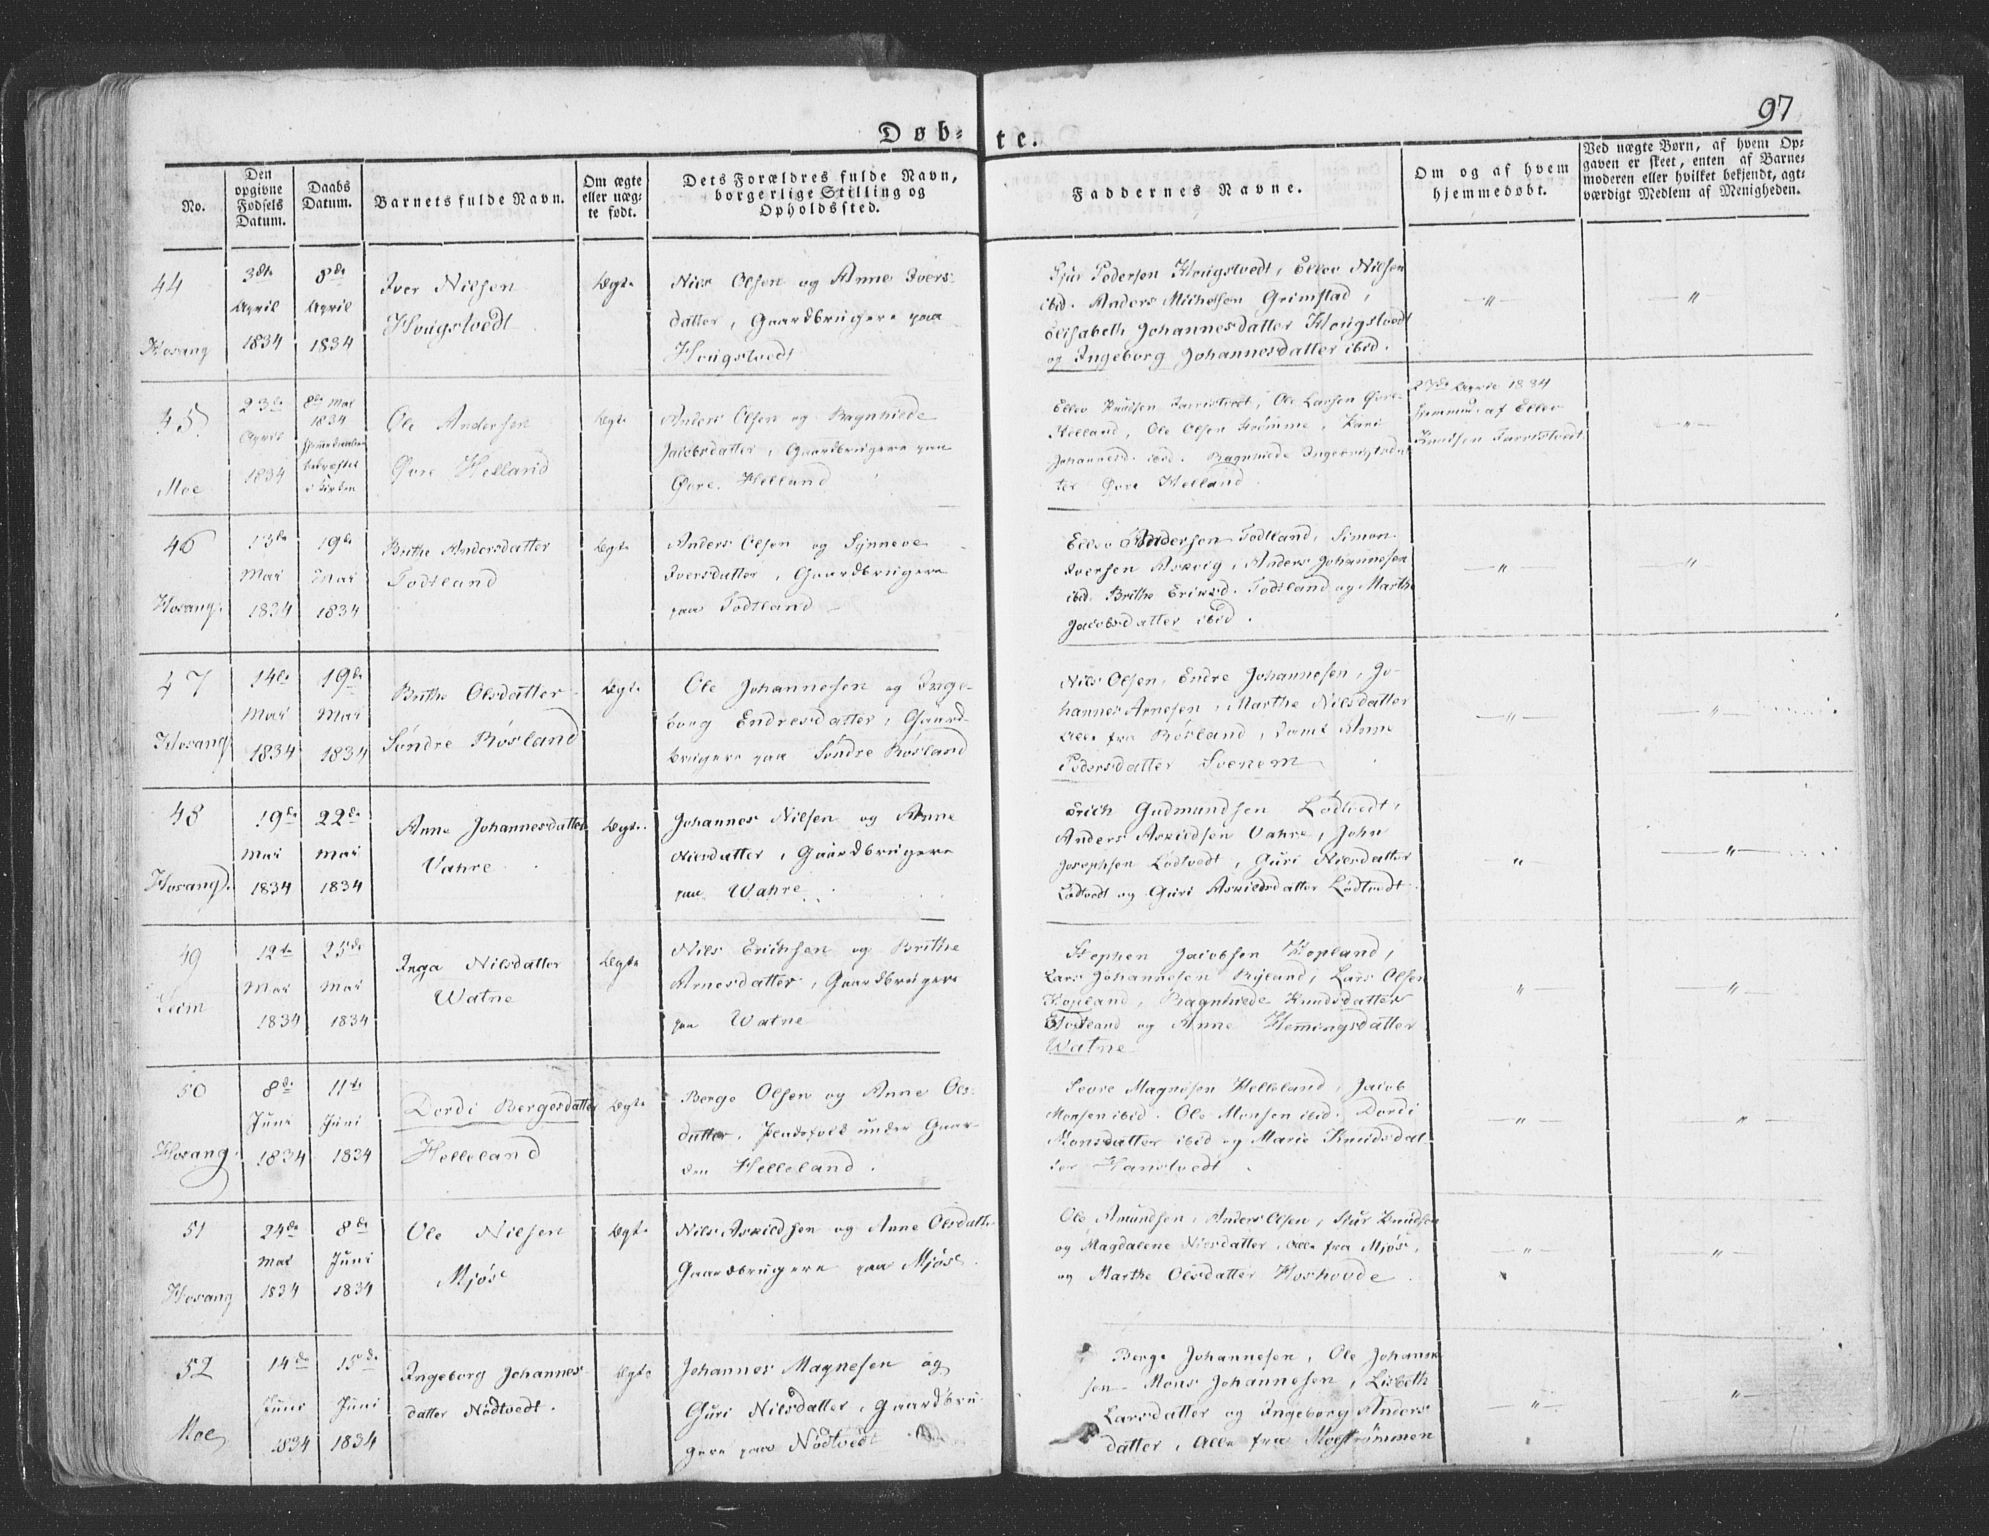 97
Døb-te.
No.
Den opgivne Fødsels Datum.
Daabs Datum.
Barnets fulde Navn.
Om ægte eller uægte født.
Dets Forældres fulde Navn, borgerlige Stilling og Opholdssted.
Faddernes Navne.
Om og af hvem hjemmedøbt.
Ved uægte Børn, af hvem Opgaven er skeet, enten af Barnemoderen eller hvilket bekjendt, agtværdigt Medlem af Menigheden.
44
Hosang
3die April 1834
8de April 1834
Iver Nilsen
Hougstvedt
Ægte
Nils Olsen og Anne Ivers-
datter, Gaardbrugere paa
Hougstvedt
Sjur Pedersen Hougstvedt, Ellev Nilsen
ibid. Anders Michelsen Grimstad,
Elisabeth Johannesdatter Hougstvedt
og Ingeborg Johannesdatter ibid.
—"—
—"—
45.
Moe
23de April 1834
8de Mai 1834
Ole Andersen
Øvre Helland
Ægte
Anders Olsen og Ragnhilde
Jacobsdatter, Gaardbrugere paa
Øvre Helland
Ellev Knudsen Farristvedt, Ole Larsen Øvre
Helland, Ole Olsen Strømme, Kari
Johannesd. ibid. Ragnhilde Ingebrigtsdat-
ter Øvre Helland.
27de April 1834
hjemmed. af Ellev
Knudsen Farristvedt
—"—
46
Hosang.
13de Mai 1834
19de Mai 1834
Brithe Andersdatter
Todtland
Ægte
Anders Olsen og Synneve
Iversdatter, Gaardbrugere
paa Todtland
Ellev Andersen Todtland, Simon
Iversen Askvig, Anders Johannesen
ibid. Brithe Eriksd. Todtland og Marthe
Jacobsdatter ibid.
—"—
—"—
47
Hosang
14de Mai 1834
19de Mai 1834
Brithe Olsdatter
Søndre Røsland
Ægte
Ole Johannesen og Inge-
borg Endresdatter, Gaard-
brugere paa Søndre Røsland
Nils Olsen, Endre Johannesen, Jo-
hannes Arnesen, Marthe Nilsdatter
alle fra Røsland, samt Anne
Pedersdatter Svenem
—"—
—"—
48
Hosang.
19de Mai 1834
22de Mai 1834
Anne Johannesdatter
Vahre
Ægte.
Johannes Nilsen og Anne
Nilsdatter, Gaardbrugere
paa Wahre
Erich Gudmundsen Lødtvedt,
Anders Askildsen Vahre, John
Josephsen Lødtvedt, Guri Nilsdatter
Lødtvedt og Guri Askildsdatter Lødtvedt
"
—"—
49
Seim
12te Mai 1834
25de Mai 1834
Inga Nilsdatter
Watne
Ægte
Nils Erichsen og Brithe
Arnesdatter, Gaardbrugere
paa Watne
Stephen Jacobsen Hopland,
Lars Johannesen Ryland, Lars Olsen
Hopland, Ragnhilde Knudsdatter
Tvedtland og Anne Hemingsdatter
Watne
—"—
—"—
50
Hosang.
8de Juni 1834
11te Juni 1834
Dordi Bergesdatter
Helleland
Ægte
Berge Olsen og Anne Ols-
datter, Pladsfolk under Gaar-
den Helleland.
Sevre Magnesen Helleland, Jacob
Monsen ibid. Ole Monsen ibid. Dordi
Monsdatter ibid og Marie Knudsdat-
ter Hanstvedt.
—"—
"
51
Hosang
24de Mai 1834
8de Juni 1834
Ole Nilsen
Mjøs
Ægte
Nils Askildsen og Anne Olsdatter
Gaardbrugere paa Mjøs.
Ole Amundsen, Anders Olsen, Sjur Knudsen
og Magdalene Nilsdatter, alle fra Mjøs,
og Marthe Olsdatter Hoshovde.
—"—
—"—
52
Moe
14de Juni 1834
15de Juni 1834
Ingeborg Johannes-
datter Nødtvedt.
Ægte
Johannes Magnesen og
Guri Nilsdatter, Gaardbru-
gere paa Nødtvedt
Berge Johannesen, Ole Johanne-
sen Mons Johannesen, Lisbeth
Larsdatter og Ingeborg Anders-
datter, alle fra Moestrømmen
—"—
—"—